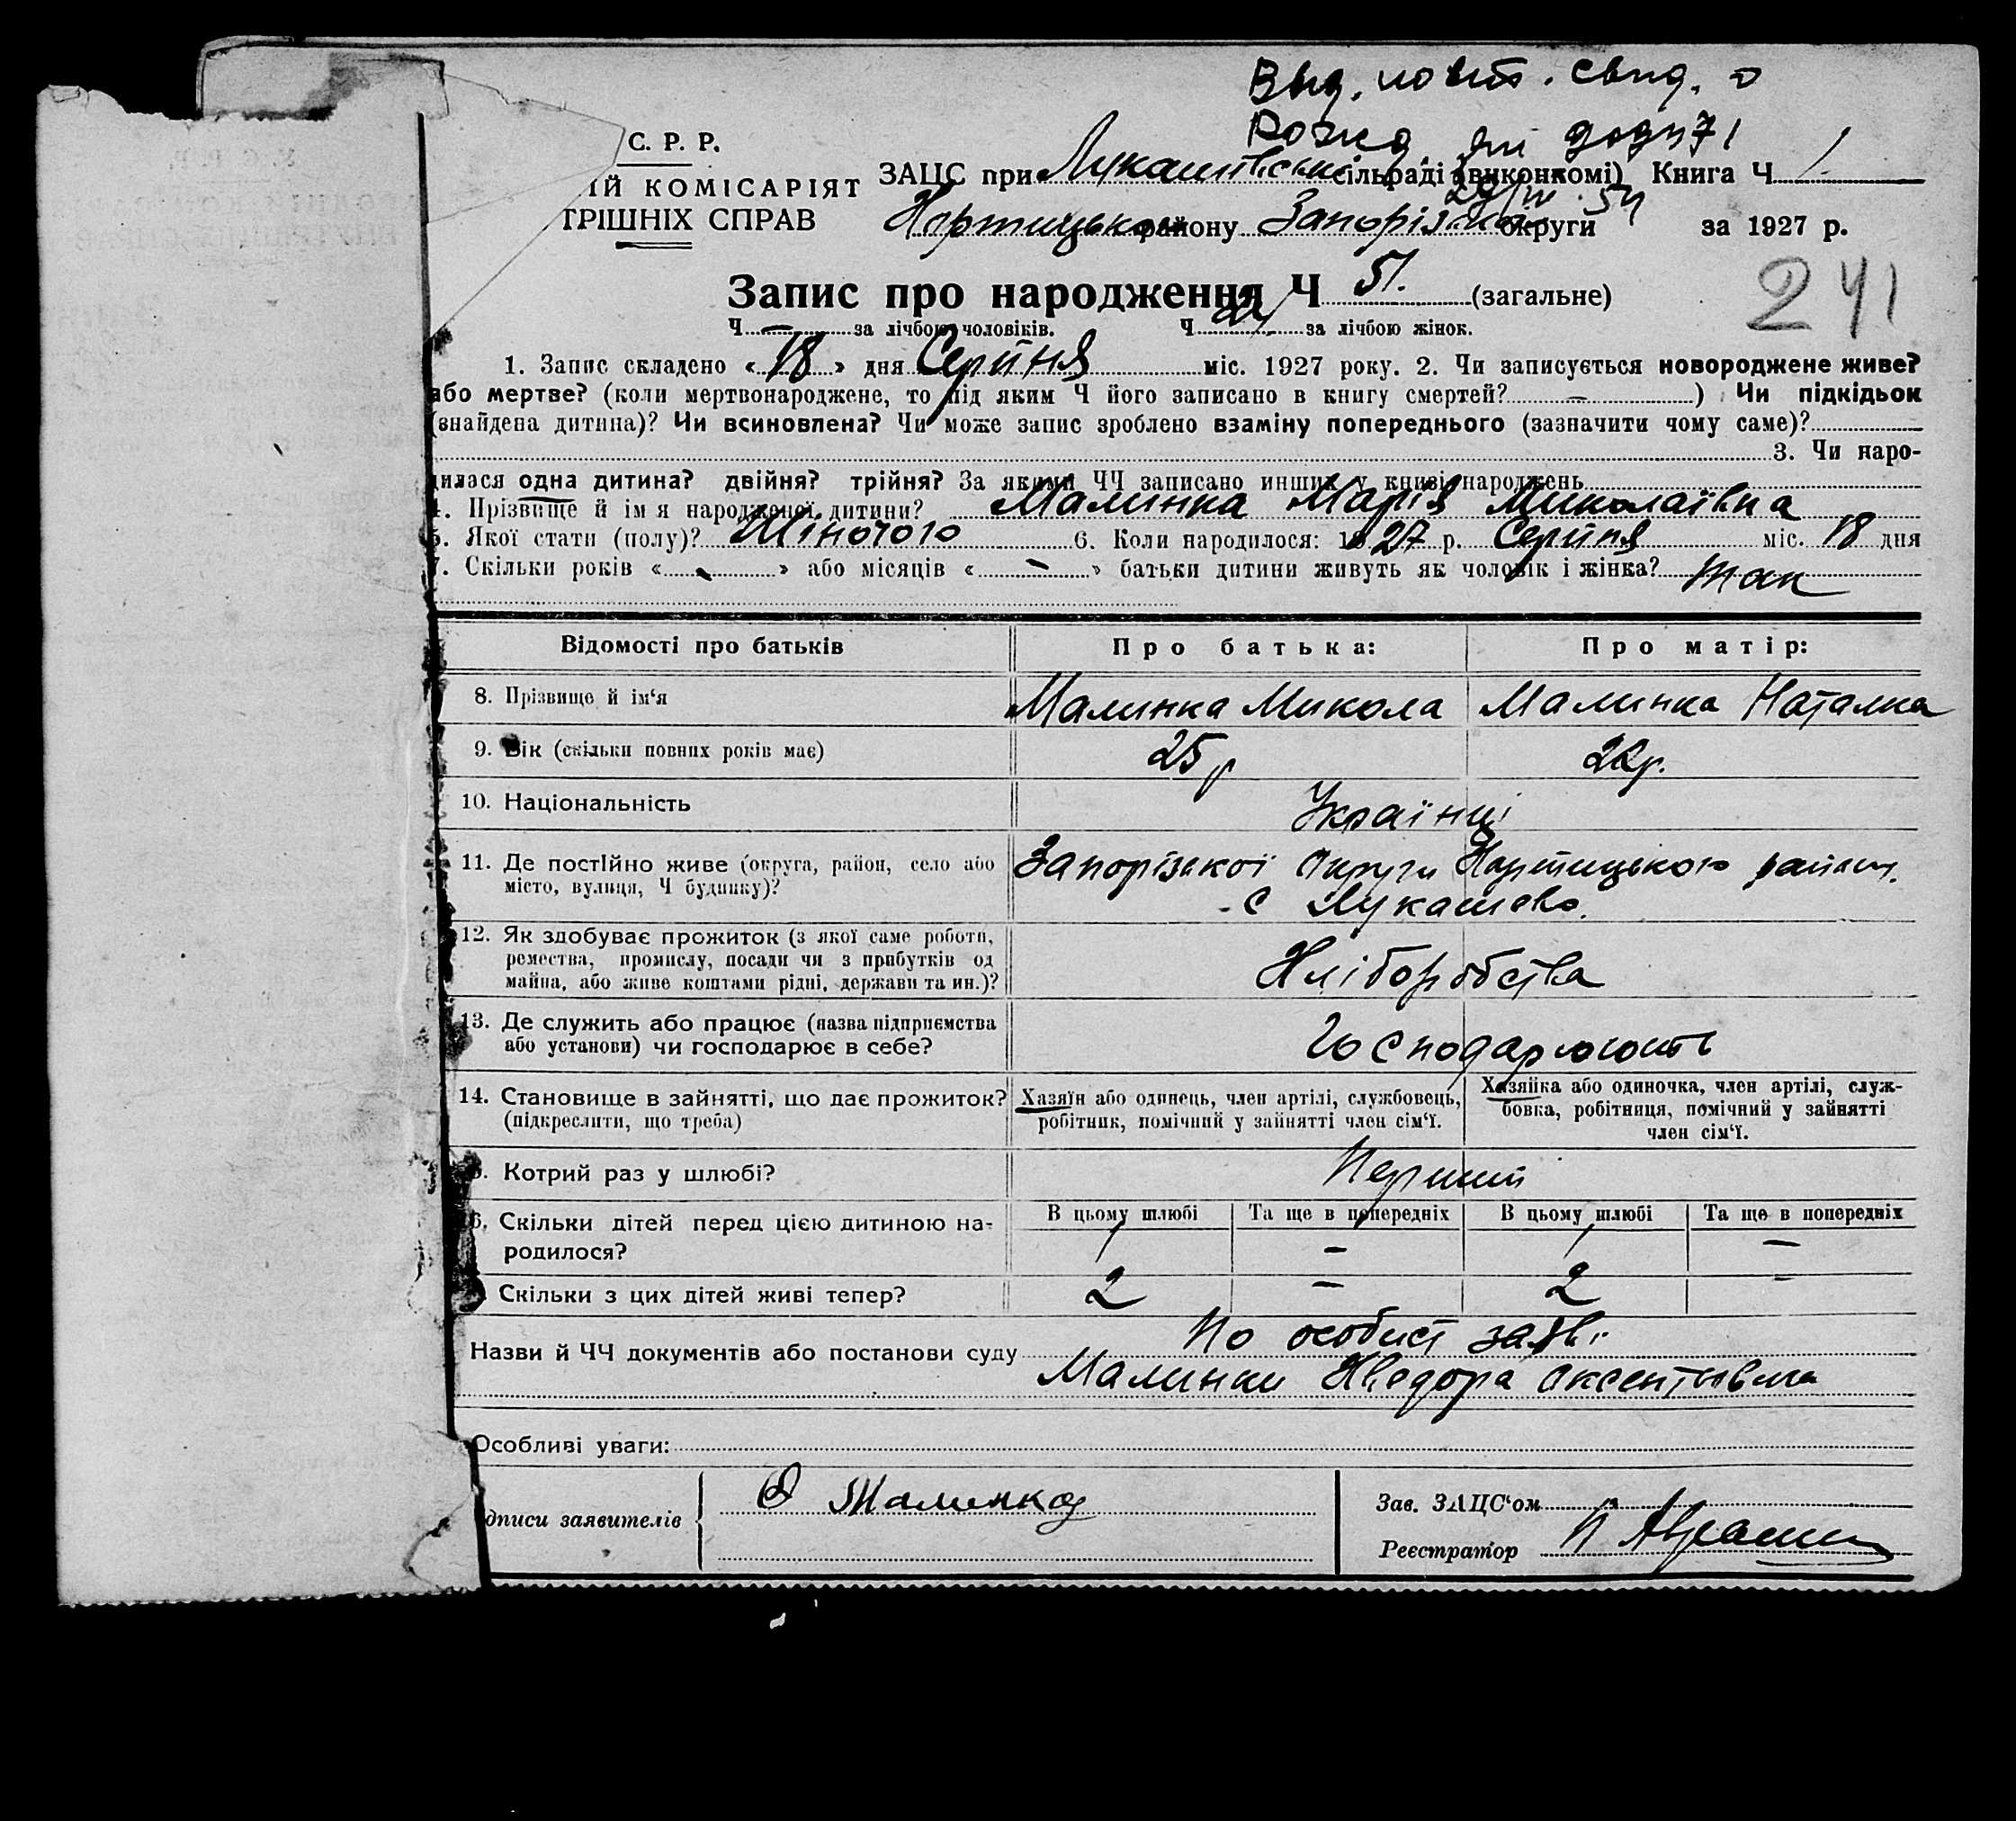 Выд. повт. свид. о
Рожд.
29/IV 54
С. Р. Р.
ІЙ КОМІСАРІЯТ
ТРІШНІХ СПРАВ
ЗАЦС при Лукашівській сільраді (виконкомі) Книга Ч 1
Хортицького району Запорізької округи за 1927 р.
241
Запис про народження Ч 51. (загальне)
Ч — за лічбою чоловіків. Ч за лічбою жінок.
1. Запис складено « 18 » дня Серпня міс. 1927 року. 2. Чи записується новороджене живе?
або мертве? (коли мертвонароджене, то під яким Ч його записано в книгу смертей? — ) Чи підкідьок
(знайдена дитина)? Чи всиновлена? Чи може запис зроблено взаміну попереднього (зазначити чому саме)?
3. Чи наро-
дилася одна дитина? двійня? трійня? За якими ЧЧ записано инших у книзі народжень
4. Прізвище й імя народженої дитини? Малинка Марія Миколаївна
5. Якої стати (полу)? Жіночого 6. Коли народилося: 1927 р. Серпня міс. 18 дня
7. Скільки років « - » або місяців « - » батьки дитини живуть як чоловік і жінка? так
Відомості про батьків Про батька: Про матір:
8. Прізвище й ім‘я Малинка Микола Малинка Наталка
9. Вік (скільки повних років має) 25 р 22 р.
10. Національність Українці
11. Де постійно живе (округа, район, село або Запорізкої Округи Хортицького району.
місто, вулиця, Ч будинку)? с Лукашево.
12. Як здобуває прожиток (з якої саме роботи,
ремества, промислу, посади чи з прибутків од Хліборобства
майна, або живе коштами рідні, держави та ин.)?
13. Де служить або працює (назва підприємства
або установи) чи господарює в себе? Господарюють
14. Становище в зайнятті, що дає прожиток? Хазяїн або одинець, член артілі, службовець, Хазяйка або одиночка, член артілі, служ-
(підкреслити, що треба) робітник, помічний у зайнятті член сім‘ї. бовка, робітниця, помічний у зайнятті
член сім‘ї.
Котрий раз у шлюбі? Перший
6. Скільки дітей перед цією дитиною на- В цьому шлюбі Та ще в попередніх В цьому шлюбі Та ще в попередніх
родилося? 1 — 1 —
Скільки з цих дітей живі тепер? 2 — 2 —
Назви й ЧЧ документів або постанови суду По особист заяві
Малинки Хведора Оксентьевича
Особливі уваги:
дписи заявителів О Малинка
Зав. ЗАЦС‘ом
Реєстратор